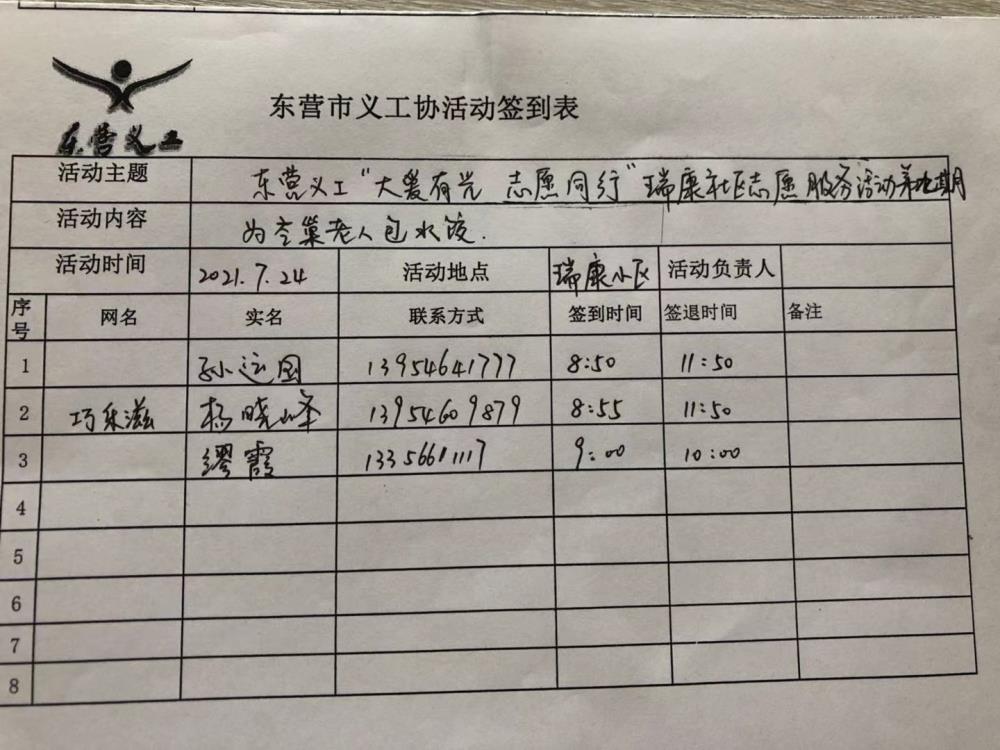 东营义工
东营市义工协活动签到表
活动主题 东营义工“大爱有光 志愿同行”瑞康社区志愿服务活动
活动内容 为空巢老人包水饺.
活动时间 2021.7.24 活动地点 瑞康小区 活动负责人
序号 网名 实名 联系方式 签到时间 签退时间 备注
1 孙运国 13954641777 8:50 11:50
2 巧乐滋 杨晓峰 13954609879 8:55 11:50
3 缪霞 13356611117 9:00 10:00
4
5
6
7
8